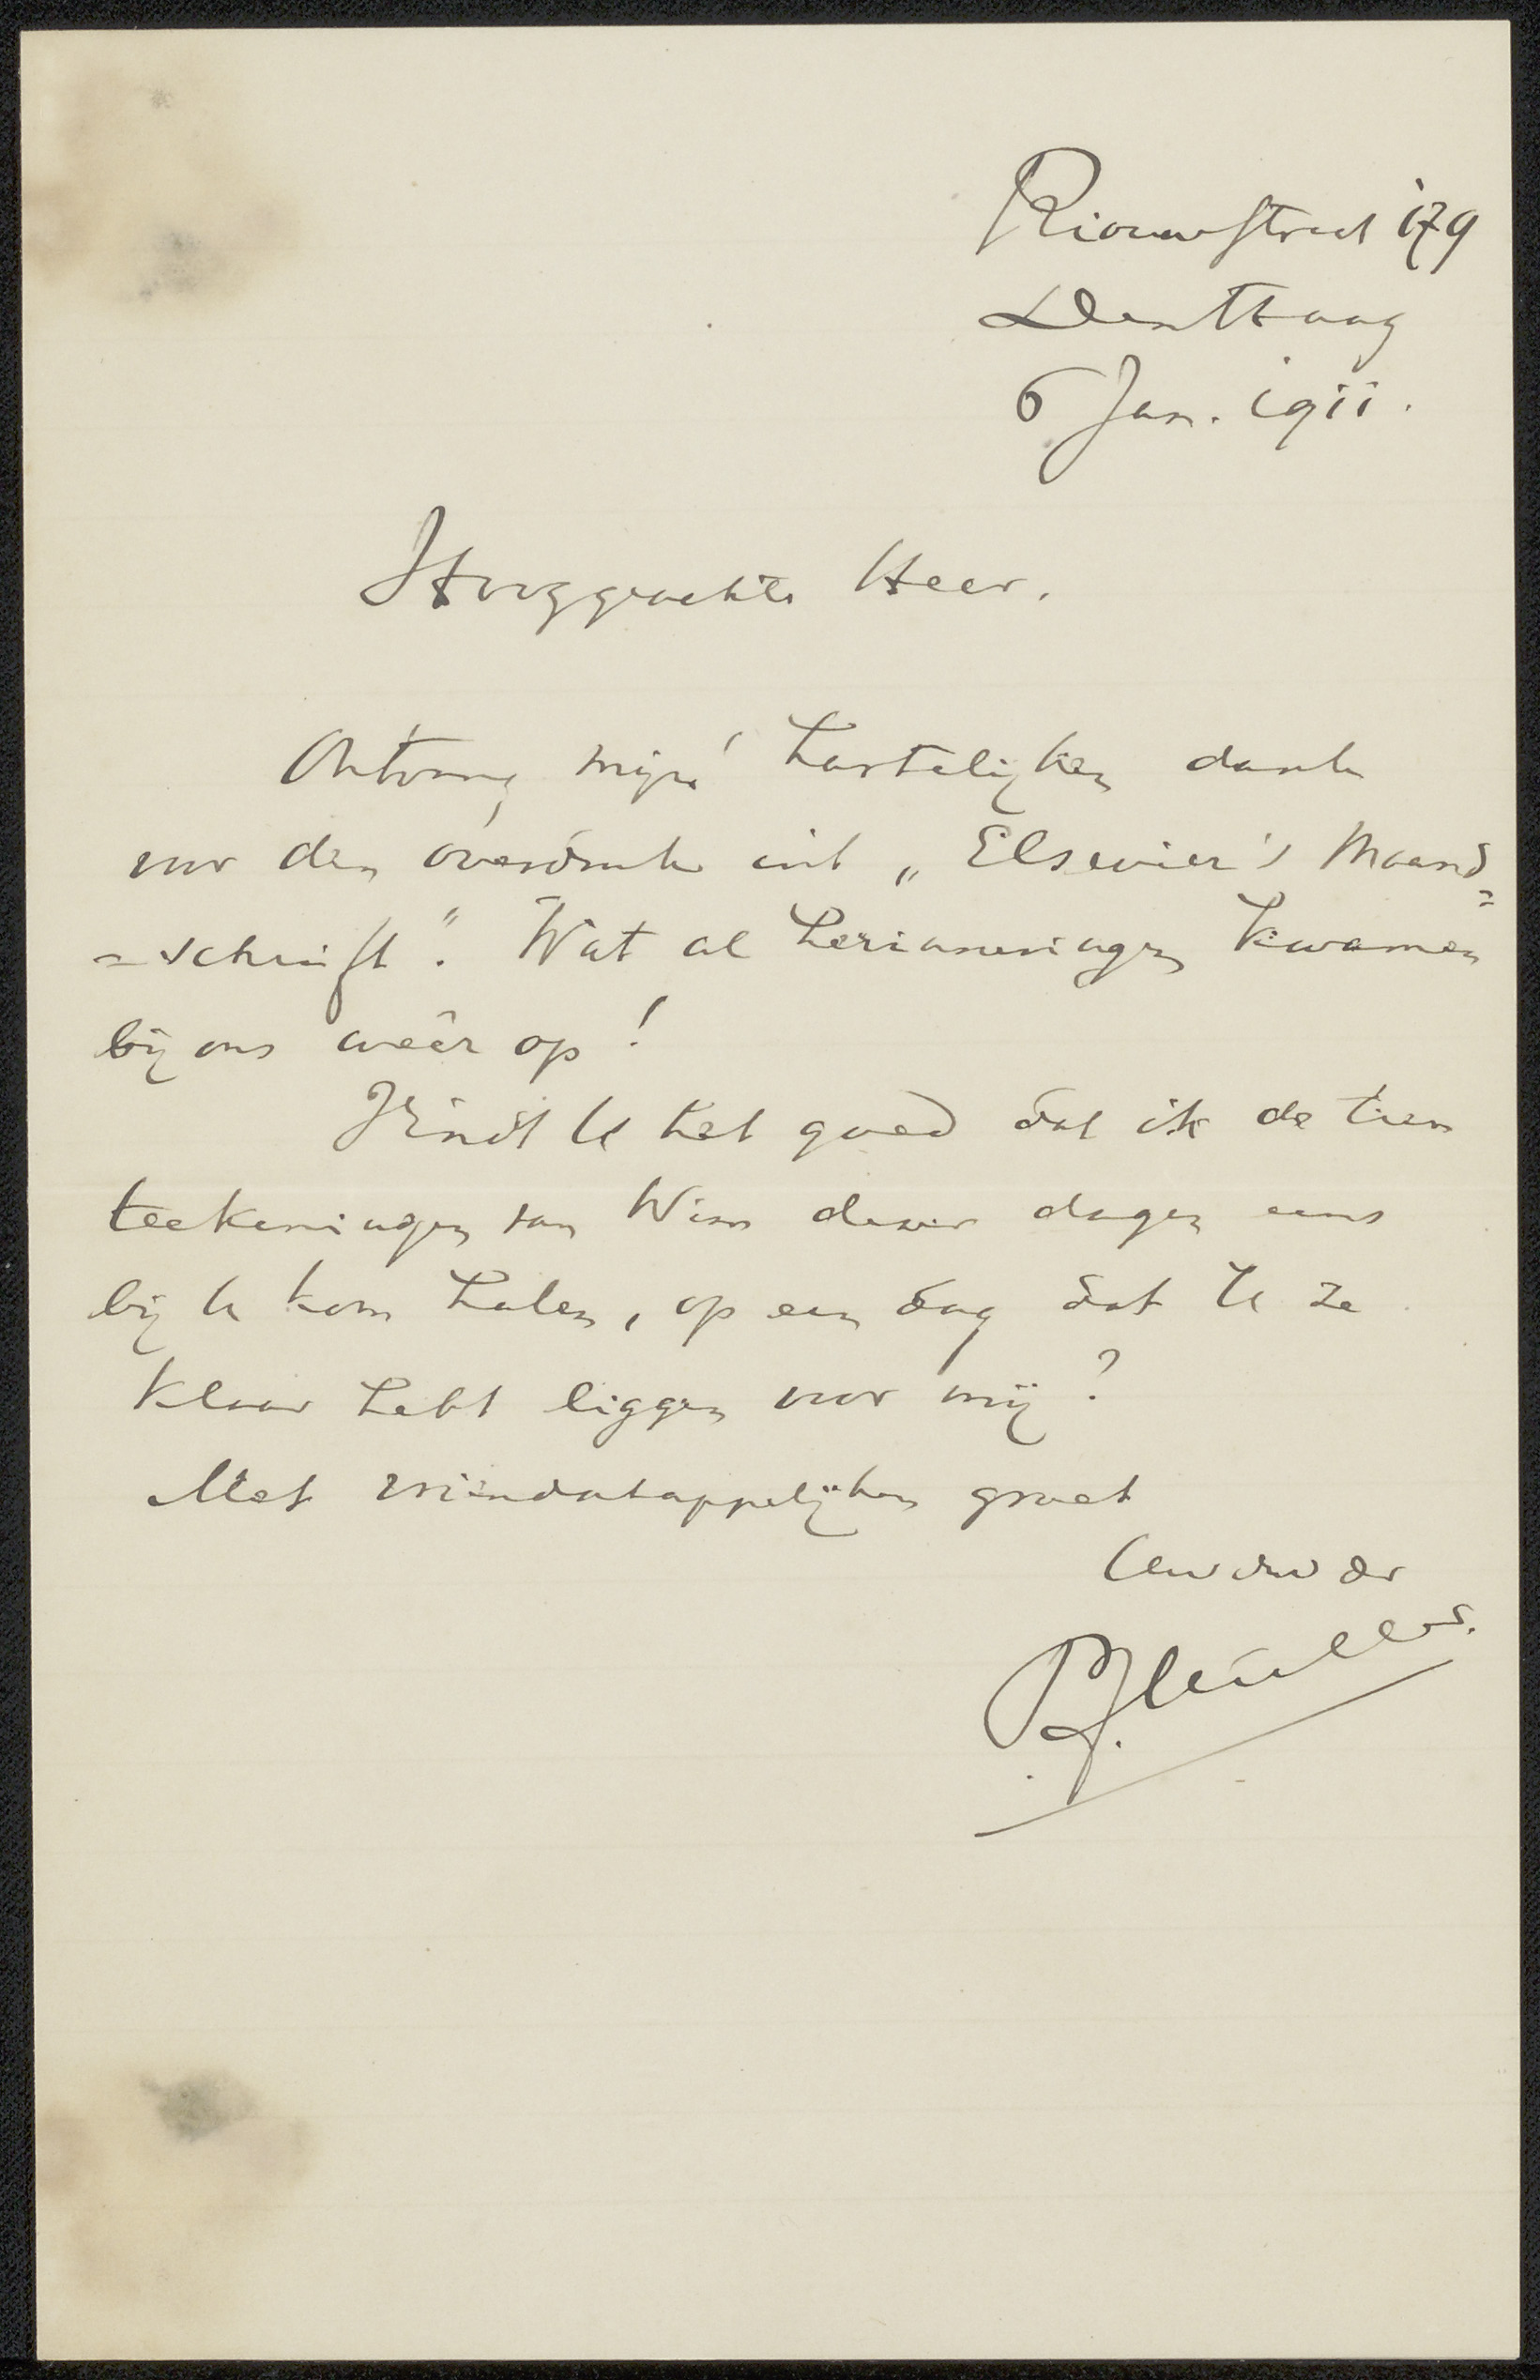 Riouwstraat 179
Den Haag
6 Jan. 1911.
Hooggeachte Heer.
Ontvang mijn hartelijken dank
voor den overdruk uit „Elsevier's Maand=
=schrift". Wat al herinneringen kwamen
bij ons weêr op!
Vindt U het goed dat ik de tien
teekeningen van Wim dezer dagen eens
bij U kom halen, op een dag dat U ze
klaar hebt liggen voor mij?
Met vriendschappelijken groet
Uw dw dr